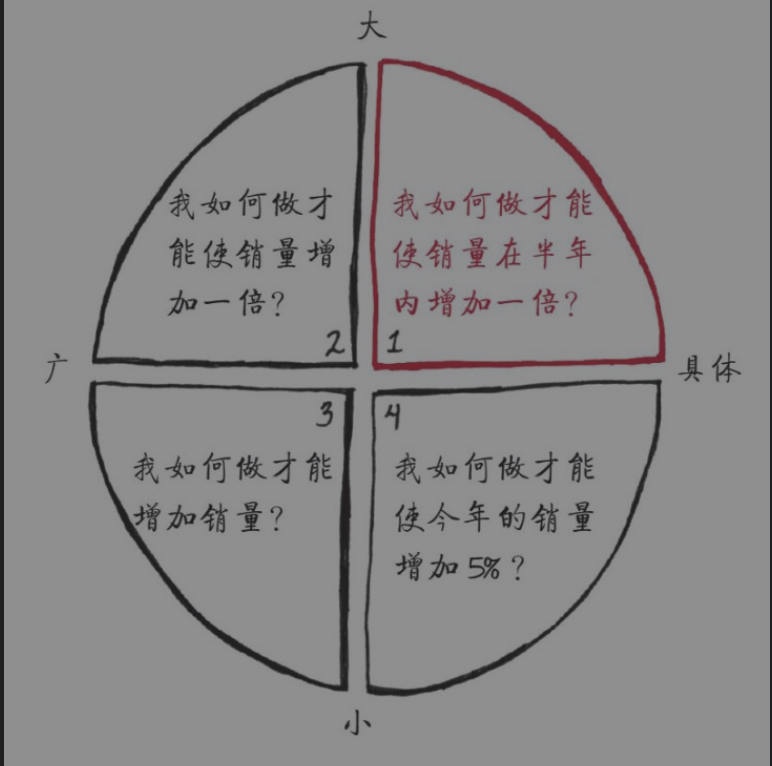 大
我如何做才
能使销量增
加一倍?
2
我如何做才能
使销量在半年
内增加一倍?
1
广
具体
3
我如何做才能
增加销量?
4
我如何做才能
使今年的销量
增加5%?
小